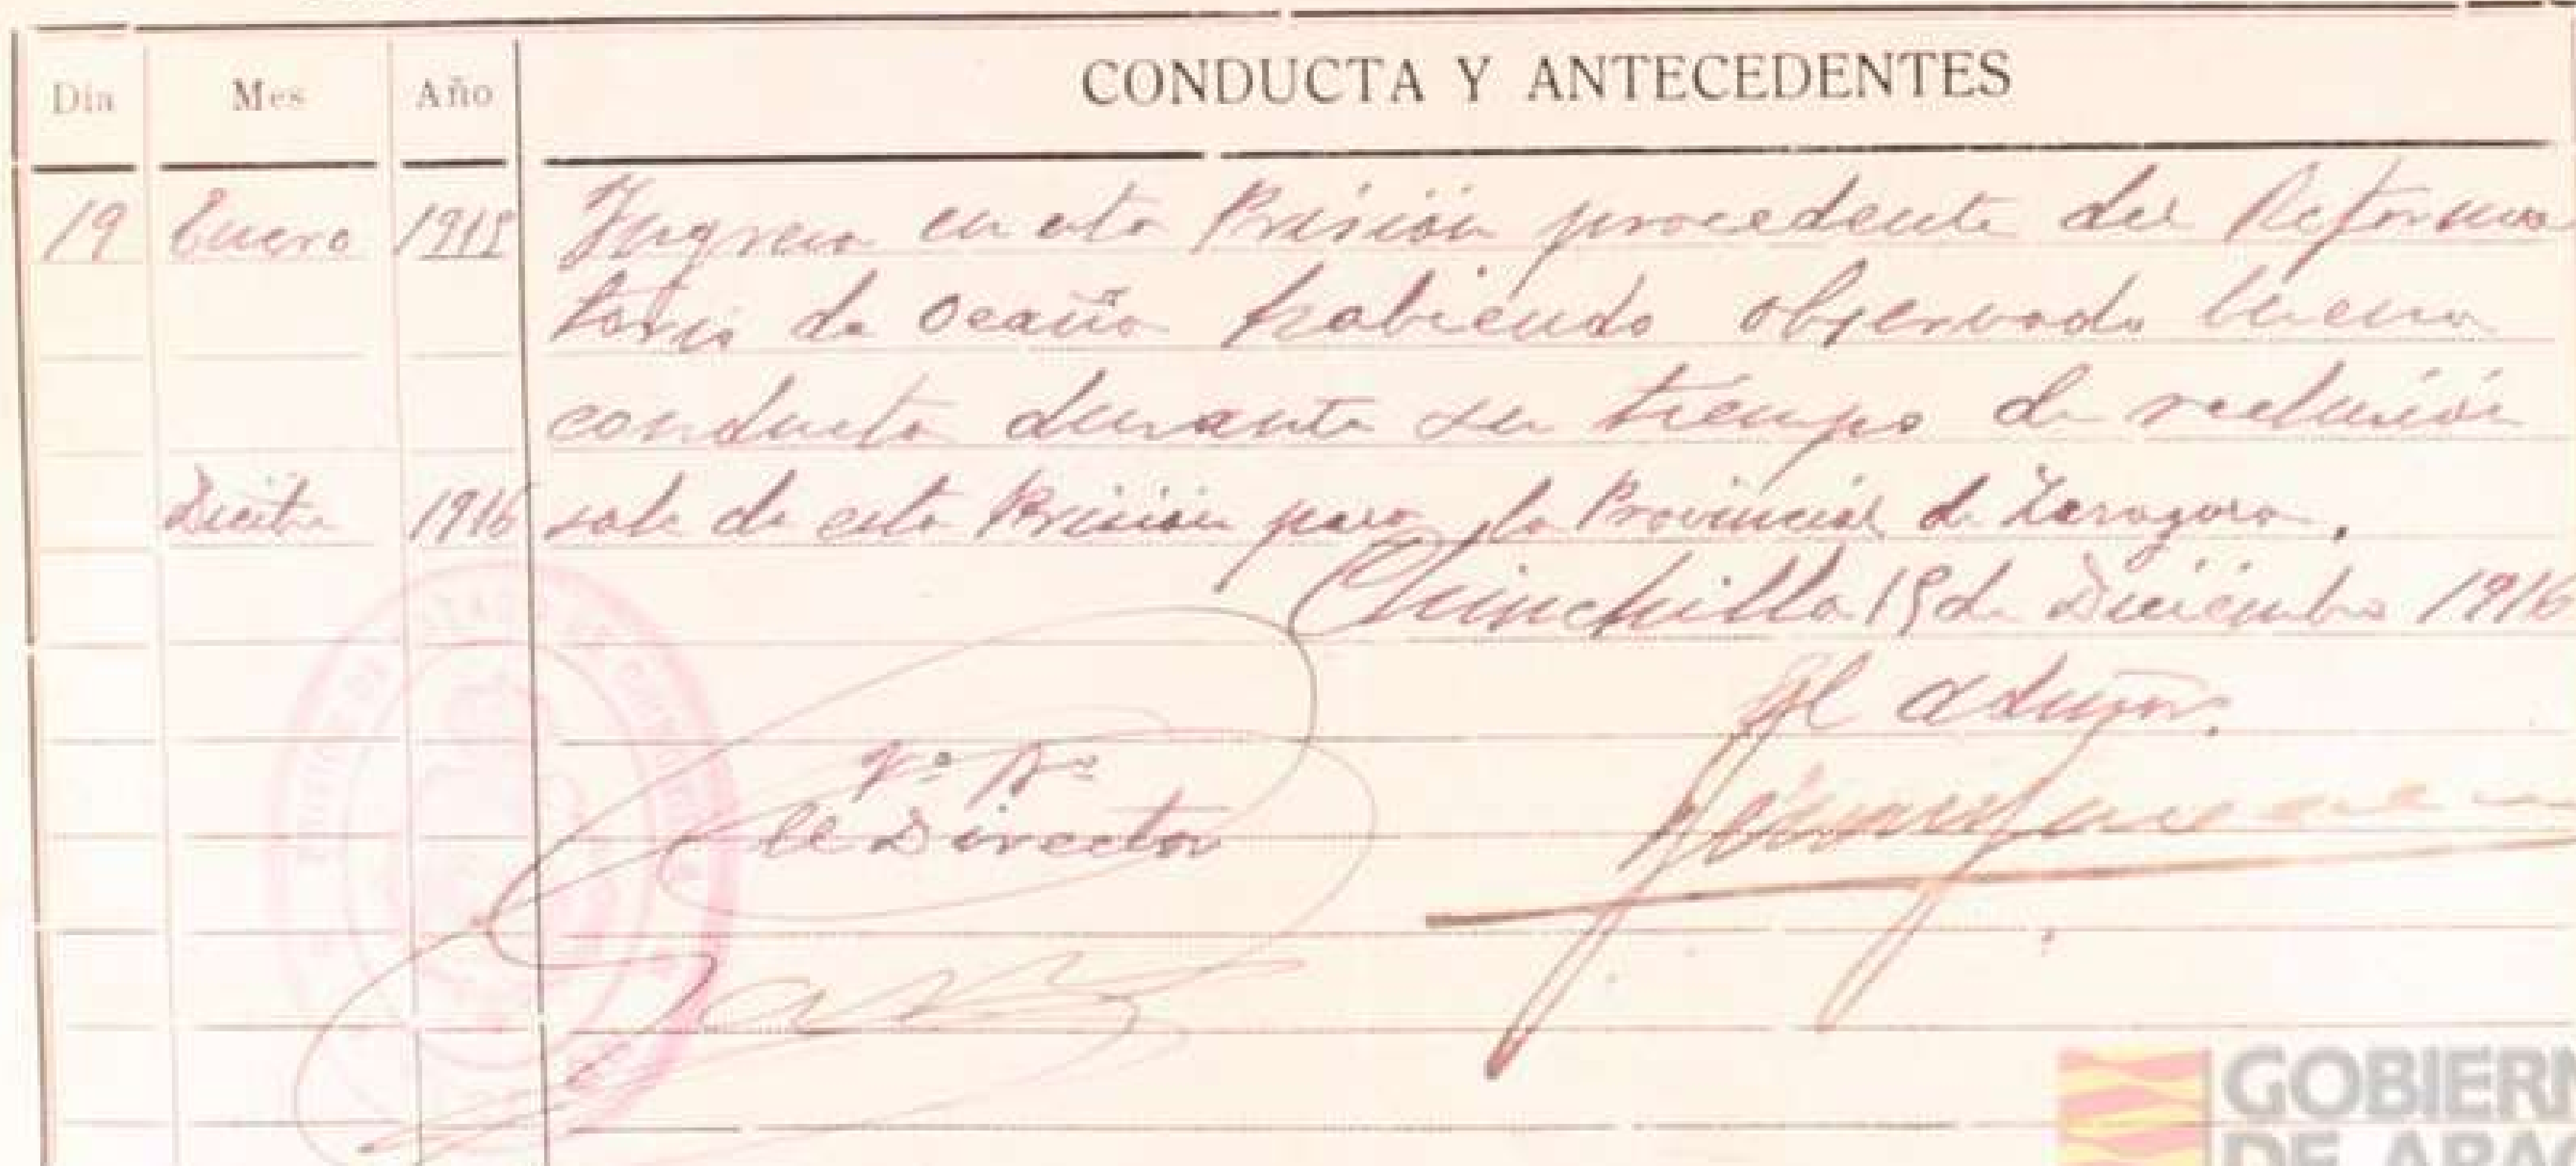 Dia Mes Año CONDUCTA Y ANTECEDENTES
19 Enero Ingresa en esta Prisión procedente del Reforma
torio de Ocaña habiendo observado buena
conducta durante su tiempo de reclusión
1916 sale de esta Prisión para la Provincial de Zaragoza.
Chinchilla 15 de Diciembre 1916
El admor.
Vº Bº
El Director
GOBIERN
DE ARAG